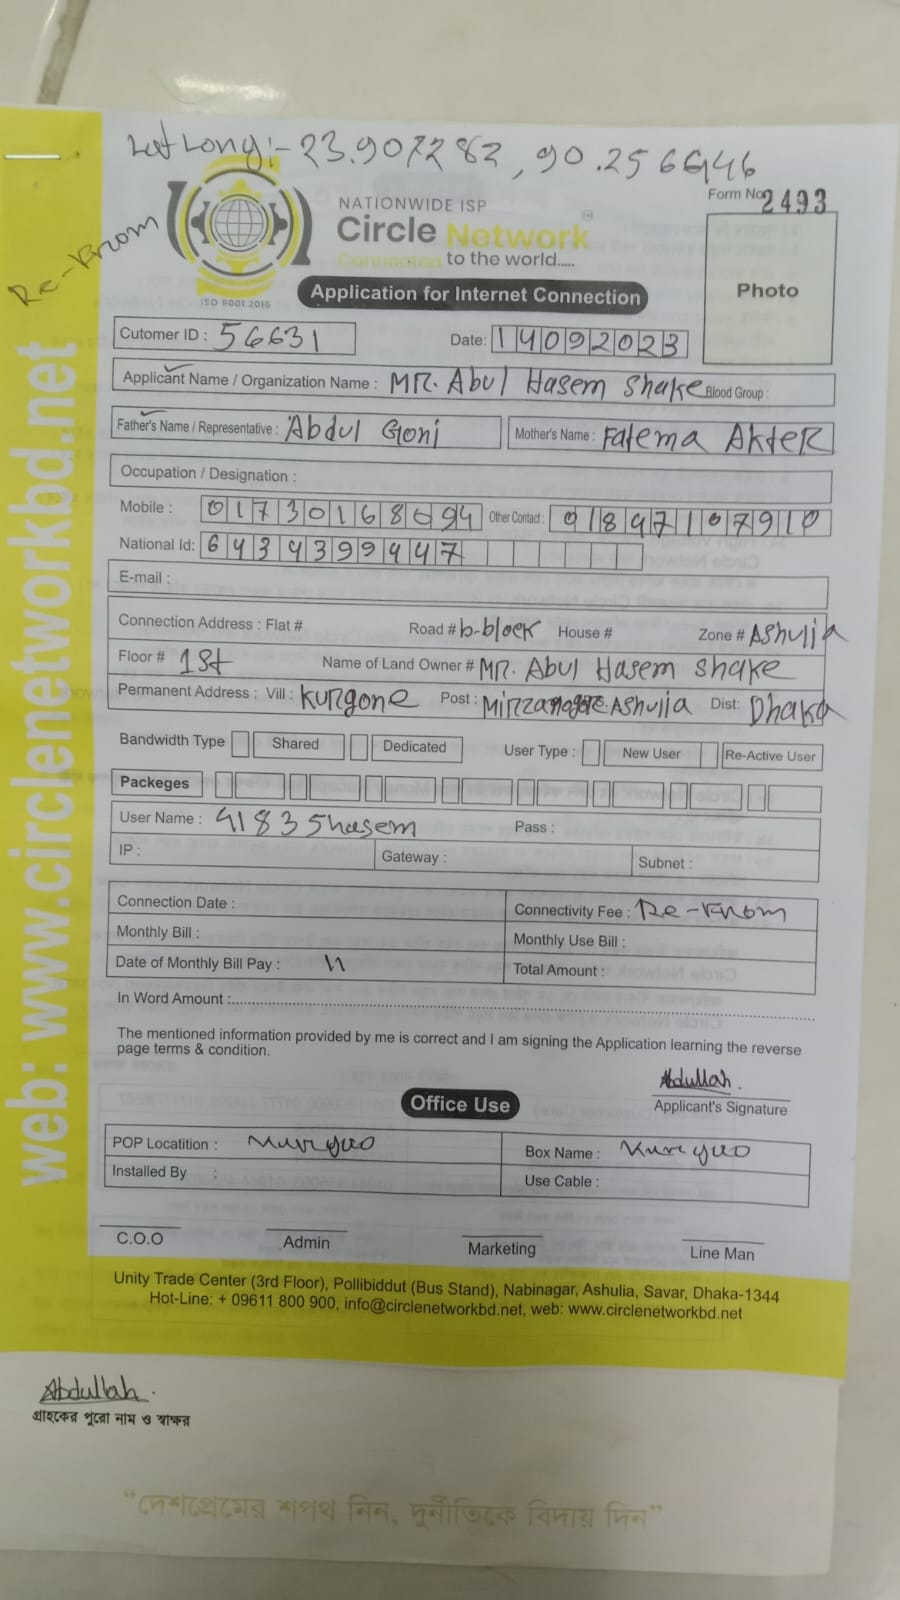 Lat Long:- 23.907282, 90.256646
Re-From
NATIONWIDE ISP
Circle Network
Connected to the world.....
ISO 9001:2015
Form No 2493
Photo
Application for Internet Connection
Cutomer ID : 56631
Date: 14092023
Applicant Name / Organization Name : MR. Abul Hasem Shake Blood Group :
Father's Name / Representative : Abdul Goni
Mother's Name : Fatema Akter
Occupation / Designation :
Mobile : 01730168694 Other Contact : 01897107910
National Id: 6434399447
E-mail :
Connection Address : Flat # Road # b-block House # Zone # Ashulia
Floor # 1st Name of Land Owner # MR. Abul Hasem Shake
Permanent Address : Vill : Kurgone Post : Mirzanagar Ashulia Dist: Dhaka
Bandwidth Type Shared Dedicated User Type : New User Re-Active User
Packeges
User Name : 41835hasem Pass :
IP : Gateway : Subnet :
Connection Date : Connectivity Fee : Re-From
Monthly Bill : Monthly Use Bill :
Date of Monthly Bill Pay : Total Amount :
In Word Amount :
The mentioned information provided by me is correct and I am signing the Application learning the reverse
page terms & condition.
Abdullah.
Applicant's Signature
Office Use
POP Locatition :
Box Name :
Installed By :
Use Cable :
C.O.O Admin Marketing Line Man
Unity Trade Center (3rd Floor), Pollibiddut (Bus Stand), Nabinagar, Ashulia, Savar, Dhaka-1344
Hot-Line: + 09611 800 900, info@circlenetworkbd.net, web: www.circlenetworkbd.net
web: www.circlenetworkbd.net
Abdullah.
গ্রাহকের পুরো নাম ও স্বাক্ষর
“দেশপ্রেমের শপথ নিন, দুর্নীতিকে বিদায় দিন”